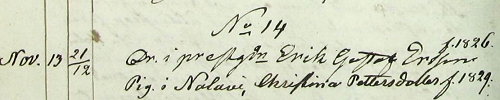 No 14
Nov. 13 21/12 Dr. i prestgdn Erik Gustaf Ersson f. 1826.
Pig. i Nalavi, Christina Pettersdotter f. 1829.